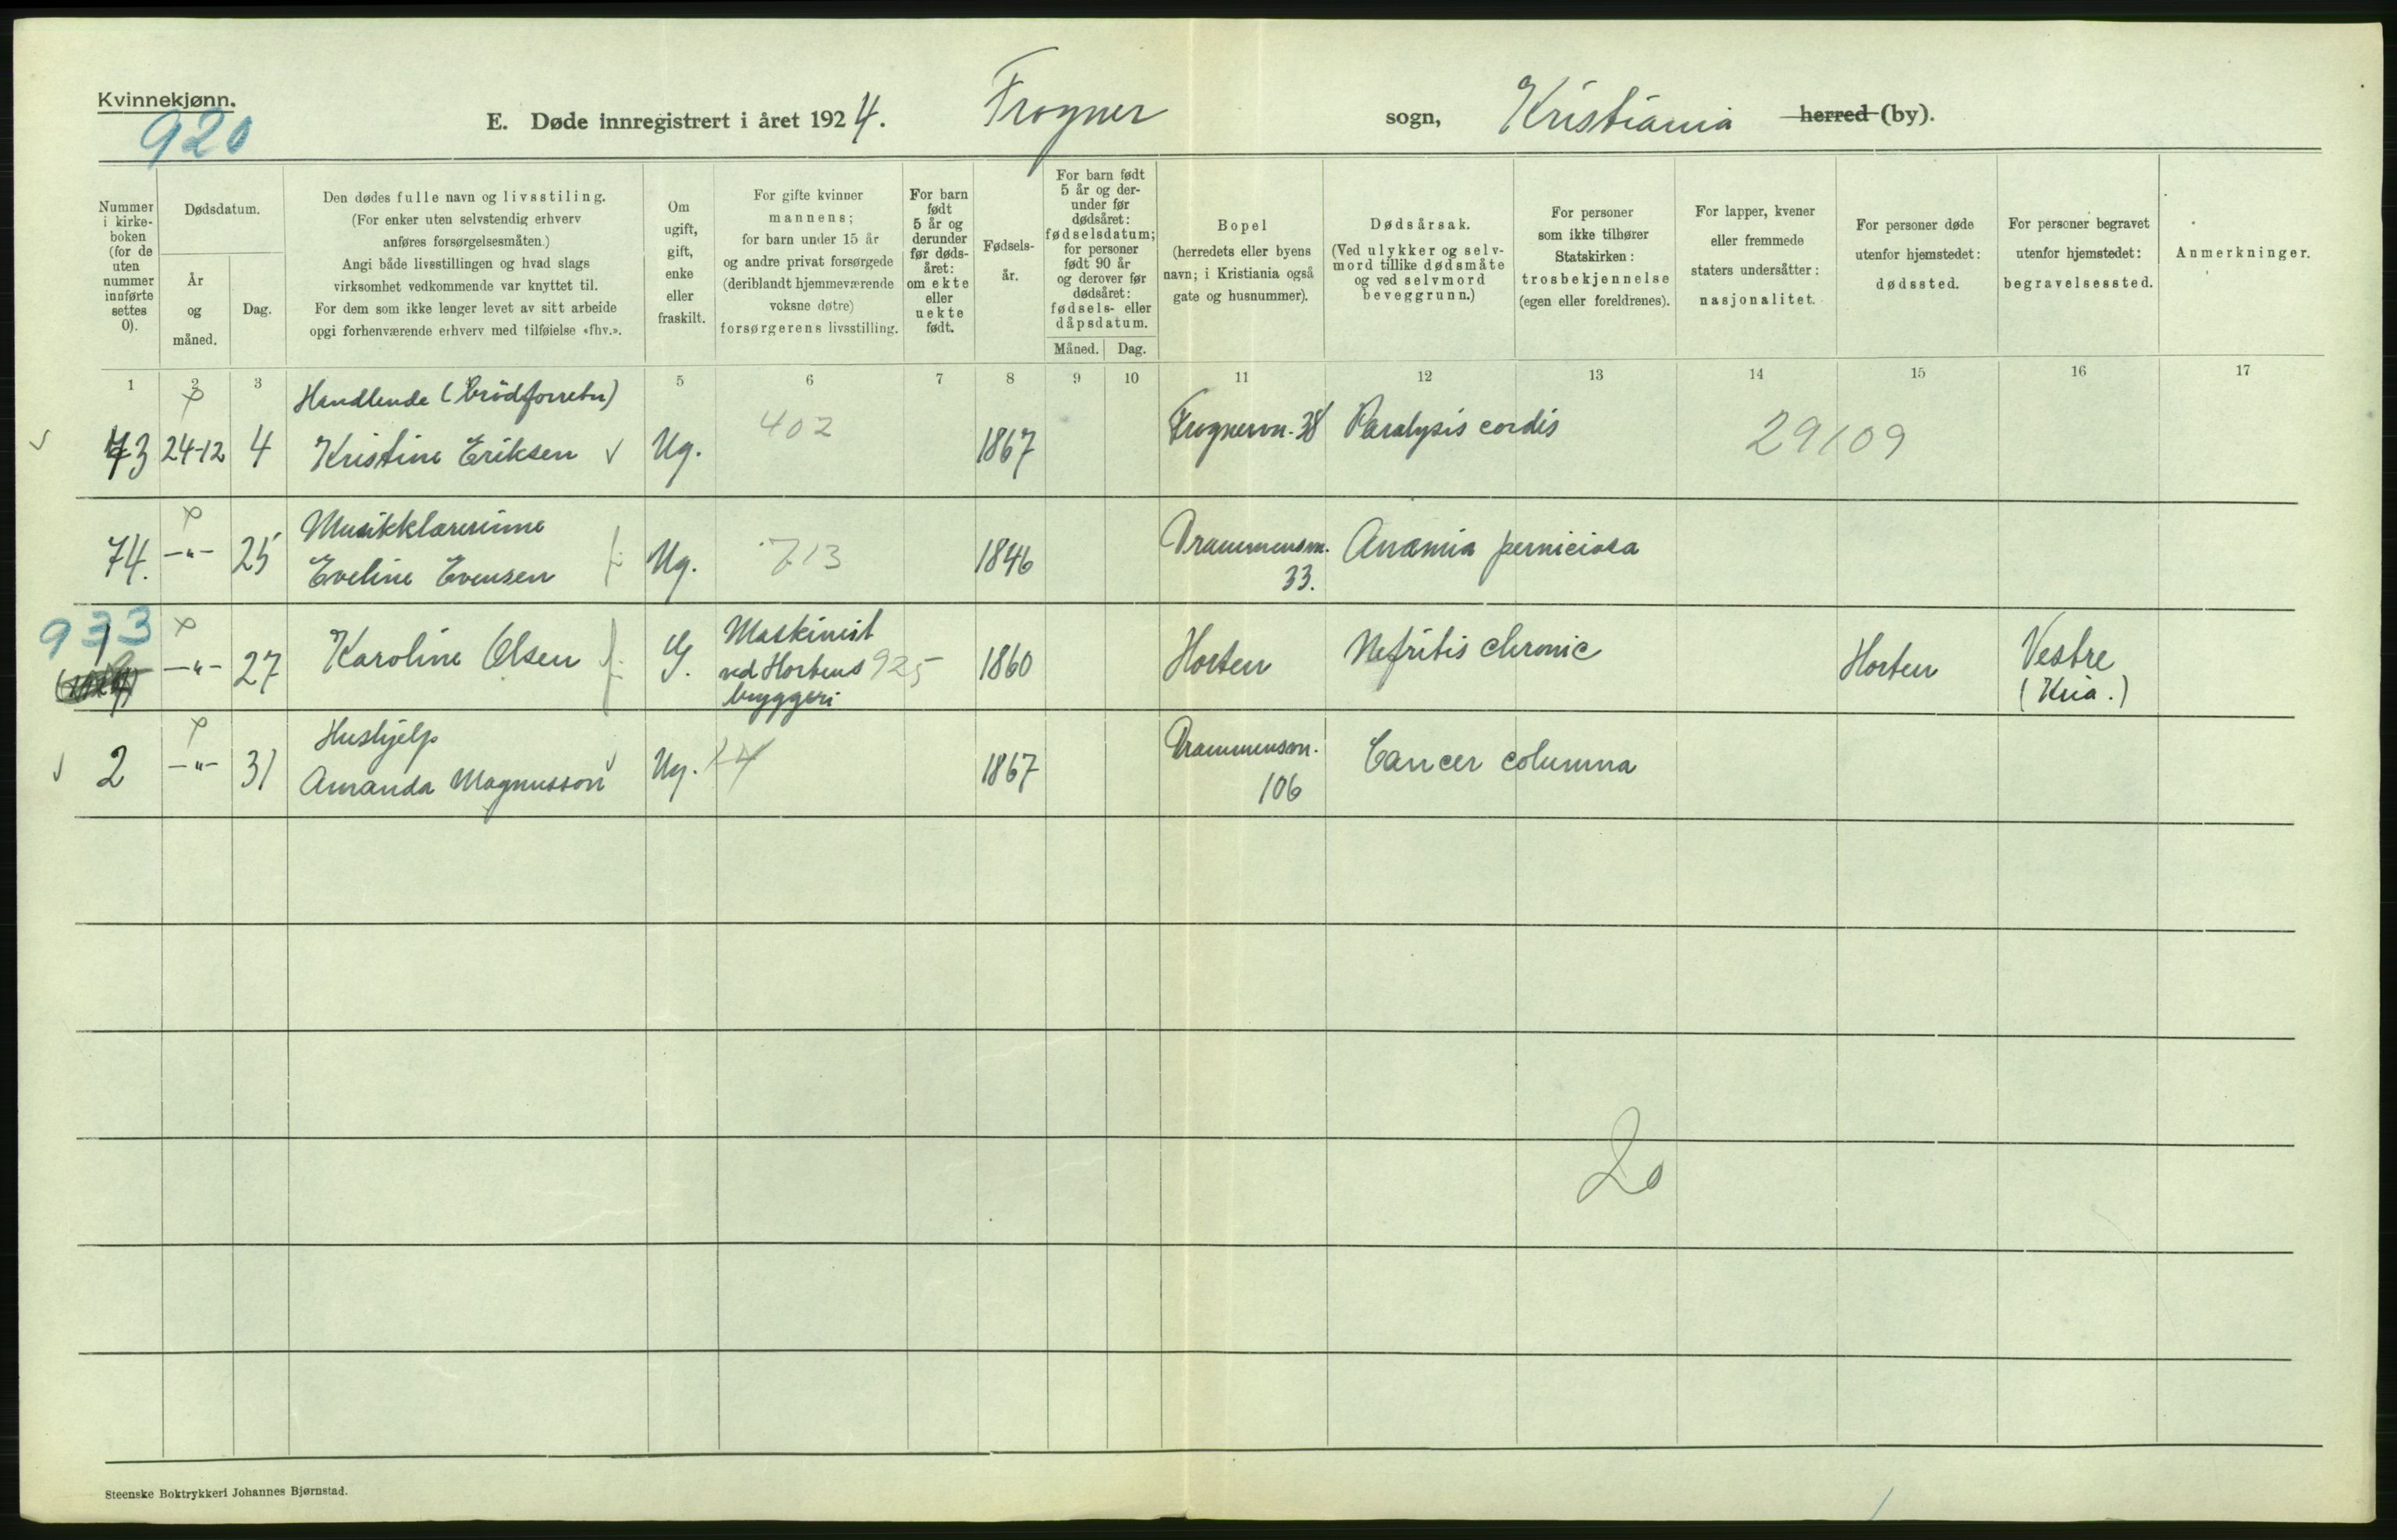 Kvinnekjønn.
920
E. Døde innregistrert i året 1924. Frogner sogn, Kristiania herred (by).
Nummer i kirke- boken (for de uten nummer innførte settes 0).
Dødsdatum.
År og måned.
Dag.
Den dødes fulle navn og livsstiling.
(For enker uten selvstendig erhverv
anføres forsørgelsesmåten.)
Angi både livsstillingen og hvad slags
virksomhet vedkommende var knyttet til.
For dem som ikke lenger levet av sitt arbeide
opgi forhenværende erhverv med tilføielse «fhv.».
Om ugift, gift, enke eller fraskilt.
For gifte kvinner
mannens;
for barn under 15 år
og andre privat forsørgede
(deriblandt hjemmeværende
voksne døtre)
forsørgerens livsstilling.
For barn født 5 år og derunder før døds- året: om ekte eller uekte født.
Fødsels- år.
For barn født 5 år og der- under før dødsåret: fødselsdatum; for personer født 90 år og derover før dødsåret: fødsels- eller dåpsdatum.
Måned. Dag.
Bopel
(herredets eller byens
navn; i Kristiania også
gate og husnummer).
Dødsårsak.
(Ved ulykker og selv-
mord tillike dødsmåte
og ved selvmord
beveggrunn.)
For personer
som ikke tilhører
Statskirken:
trosbekjennelse
(egen eller foreldrenes).
For lapper, kvener
eller fremmede
staters undersåtter:
nasjonalitet.
For personer døde
utenfor hjemstedet:
dødssted.
For personer begravet
utenfor hjemstedet:
begravelsessted.
Anmerkninger.
1 2 3 5 6 7 8 9 10 11 12 13 14 15 16 17
Handlende (brödforretn)
73 24-12 4 Kristine Eriksen Ug. 402 1867 Frognervn. 38 Paralysis cordis 29109
Musikklærerinne
74. -"- 25 Eveline Evensen Ug. 713 1846 Drammensvn. 33. Anæmia perniciosa
933
1 -"- 27 Karoline Olsen G. Maskinist
ved Hortens 925
bryggeri
1860 Horten Nefritis chronic Horten Vestre
(Kria.)
Hushjelp
2 -"- 31 Amanda Magnusson Ug. 1867 Drammensvn.
106 Cancer columna
20
Steenske Boktrykkeri Johannes Bjørnstad.